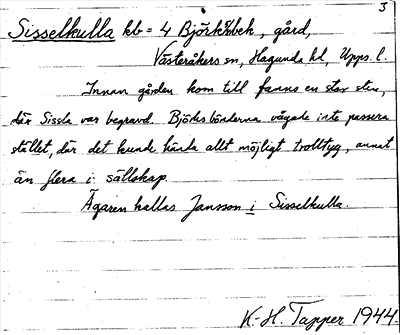 3
Sisselkulla kb = 4 Björksbek, gård,
Västeråkers sn, Hagunda hd, Upps. l.
Innan gården kom till fanns en stor sten,
där Sissla var begravd. Björksbönderna vågade inte passera
stället, där det kunde hända allt möjligt trolltyg, annat
än flera i sällskap.
Ägaren kallas Jansson i Sisselkulla.
K.-H. Tapper 1944.